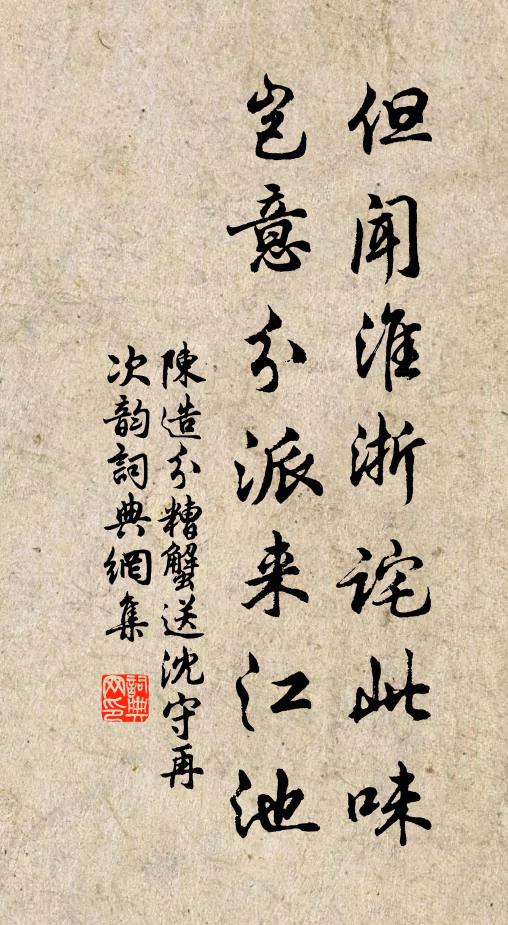 但闻淮浙詫此味
岂意分派来江池
陳造分糟蟹送沈守再
次韵詞典網集
詞典网印